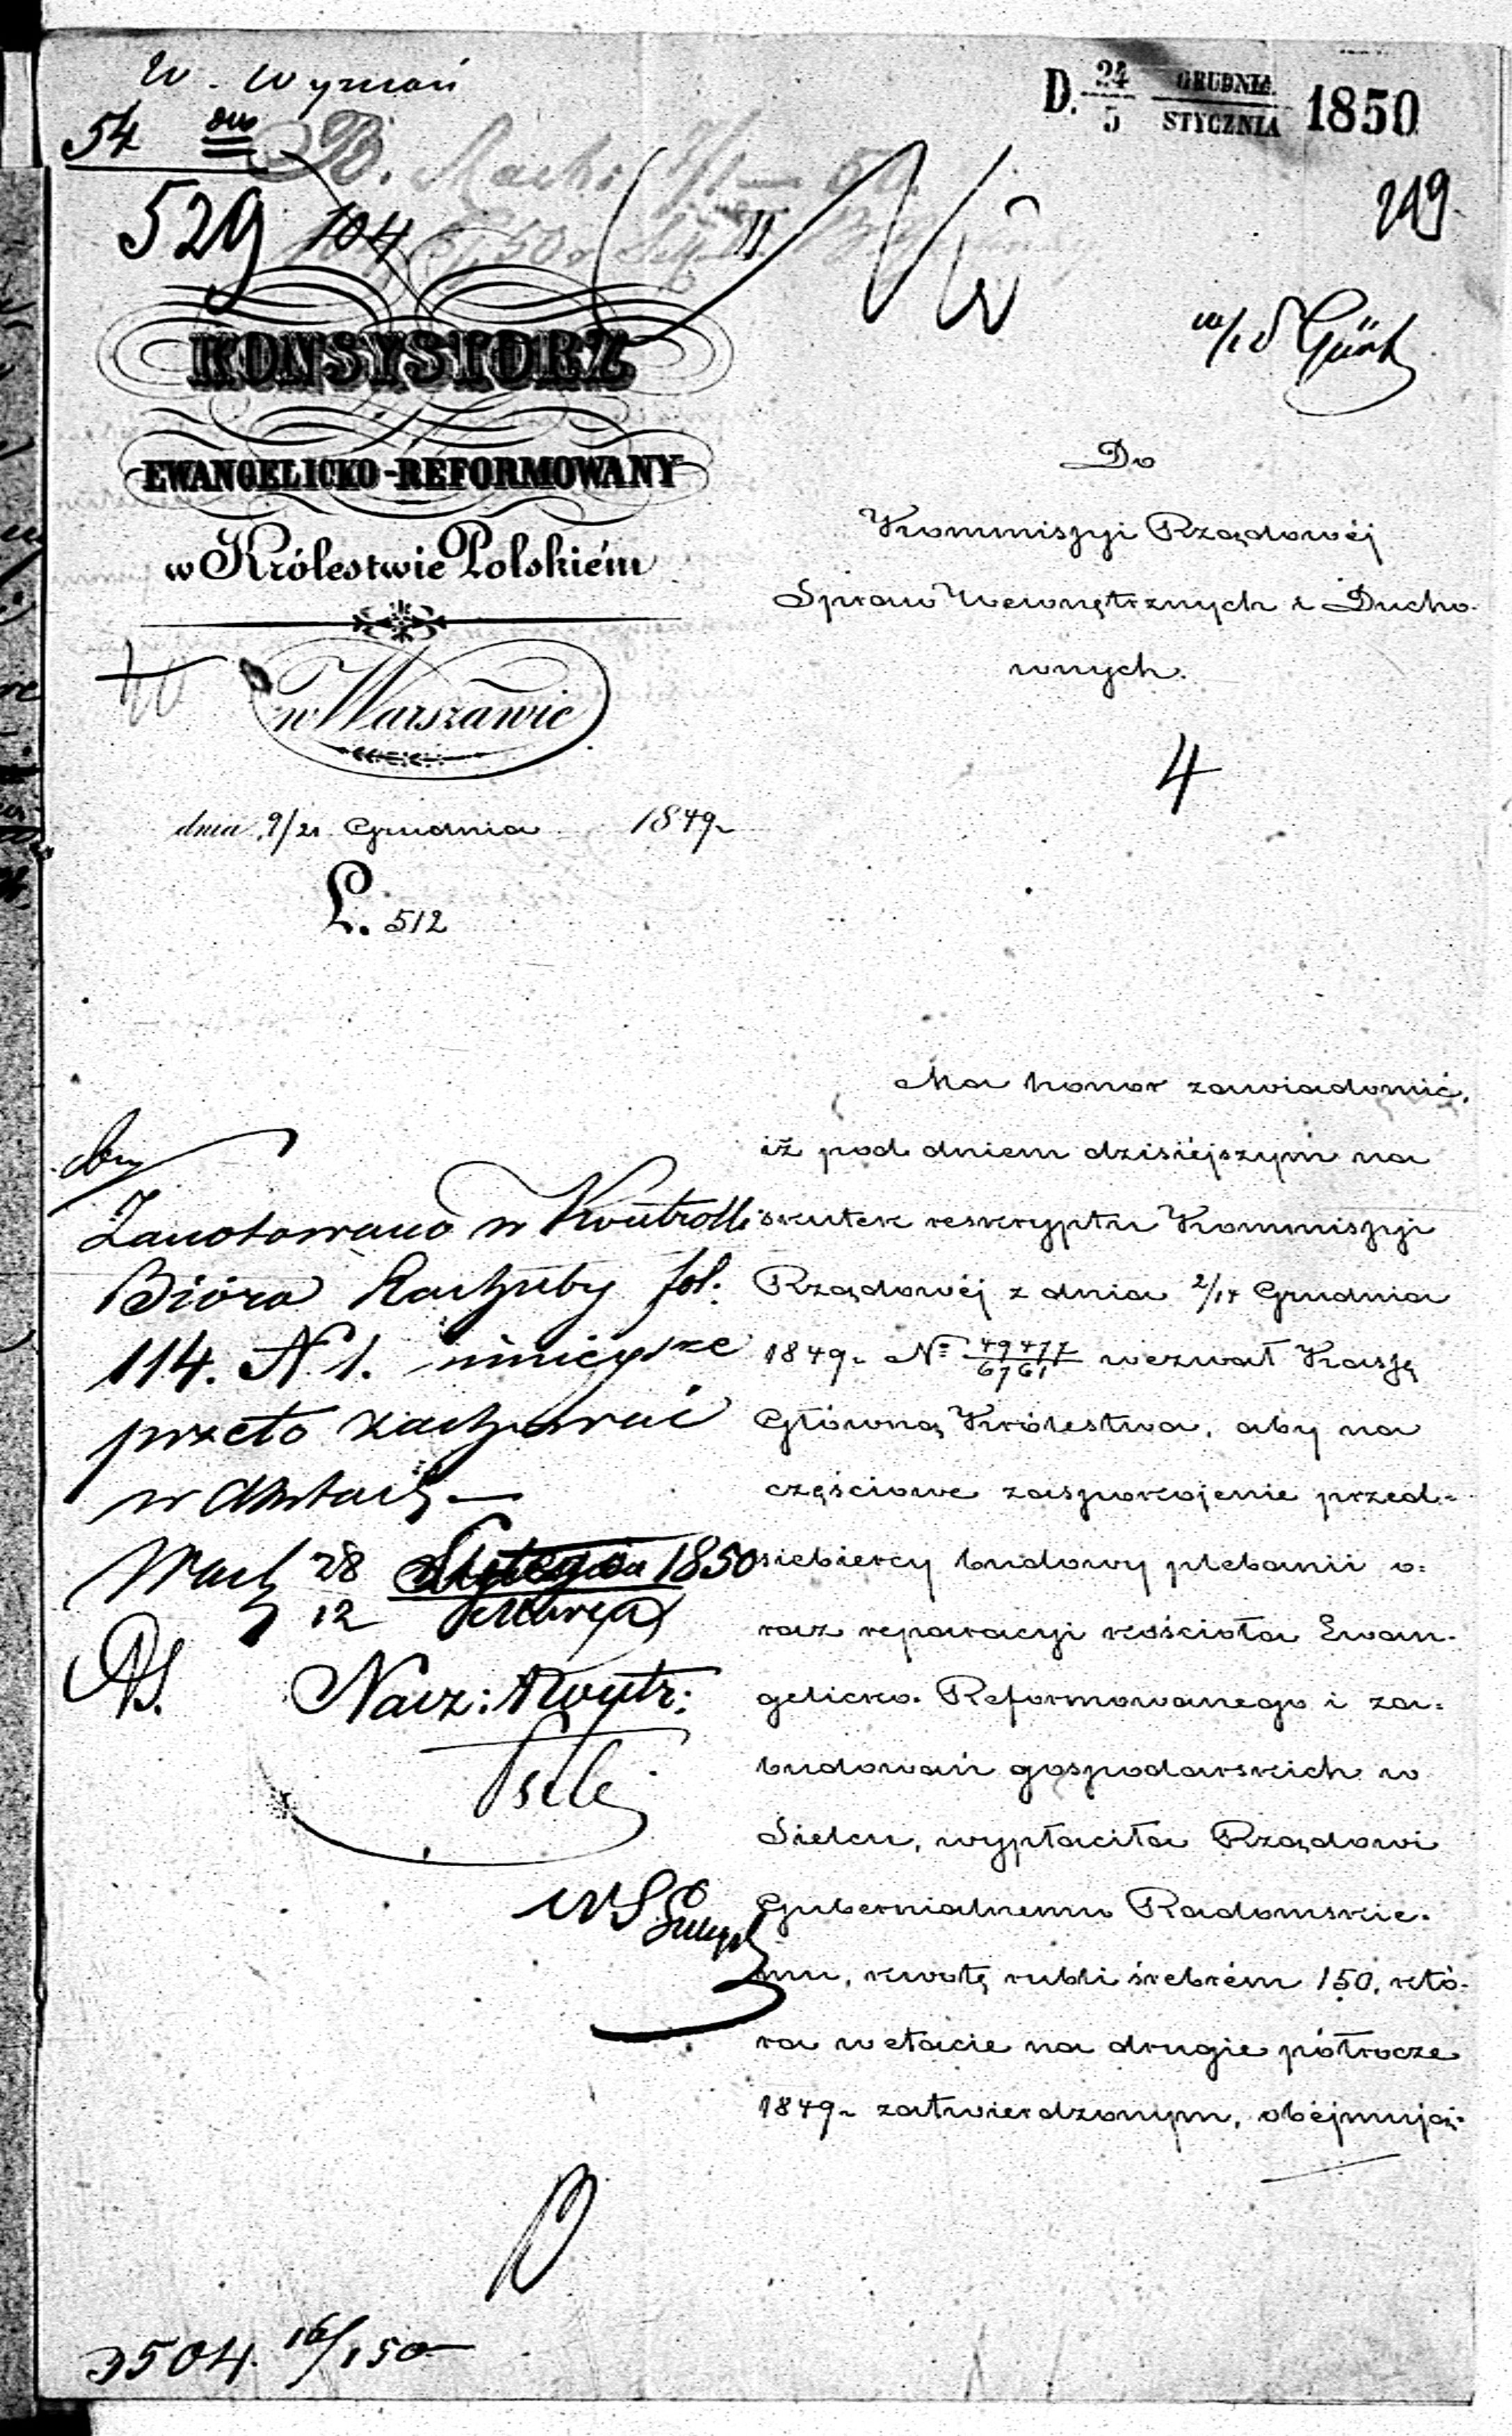 W. Wyznań
D. 24/5 GRUDNIA/STYCZNIA 1850
54
529 104
219
KONSYSTORZ
EWANGELICKO-REFORMOWANY
w Królestwie Polskiém
w Warszawie
dnia 9/21 Grudnia 1849
L. 512
Do
Kommissyi Rządowéj
Spraw Wewnętrznych i Ducho-
wnych.
4
Ma honor zawiadomić,
iż pod dniem dzisiéjszym na
skutek reskryptu Kommissyi
Rządowéj z dnia 2/14 Grudnia
1849 № 49477/6761 wezwał Kassę
Główną Królestwa, aby na
częściowe zaspokojenie przed-
siebiercy budowy plebanii o=
raz reparacyi kościoła Ewan-
gelicko-Reformowanego i za=
budowań gospodarskich w
Sielcu, wypłaciła Rządowi
Gubernialnemu Radomskie-
mu, kwotę rubli śrebrém 150, któ-
ra w etacie na drugie półrocze
1849 zatwierdzonym, obéjmują-
Zanotowano w Kontrolli
Bióra Rachuby fol:
114. N 1. niniéysze
przeto zachować
w Aktach
28/12 1850
Nacz: Kontr:
3504. 16/1 50